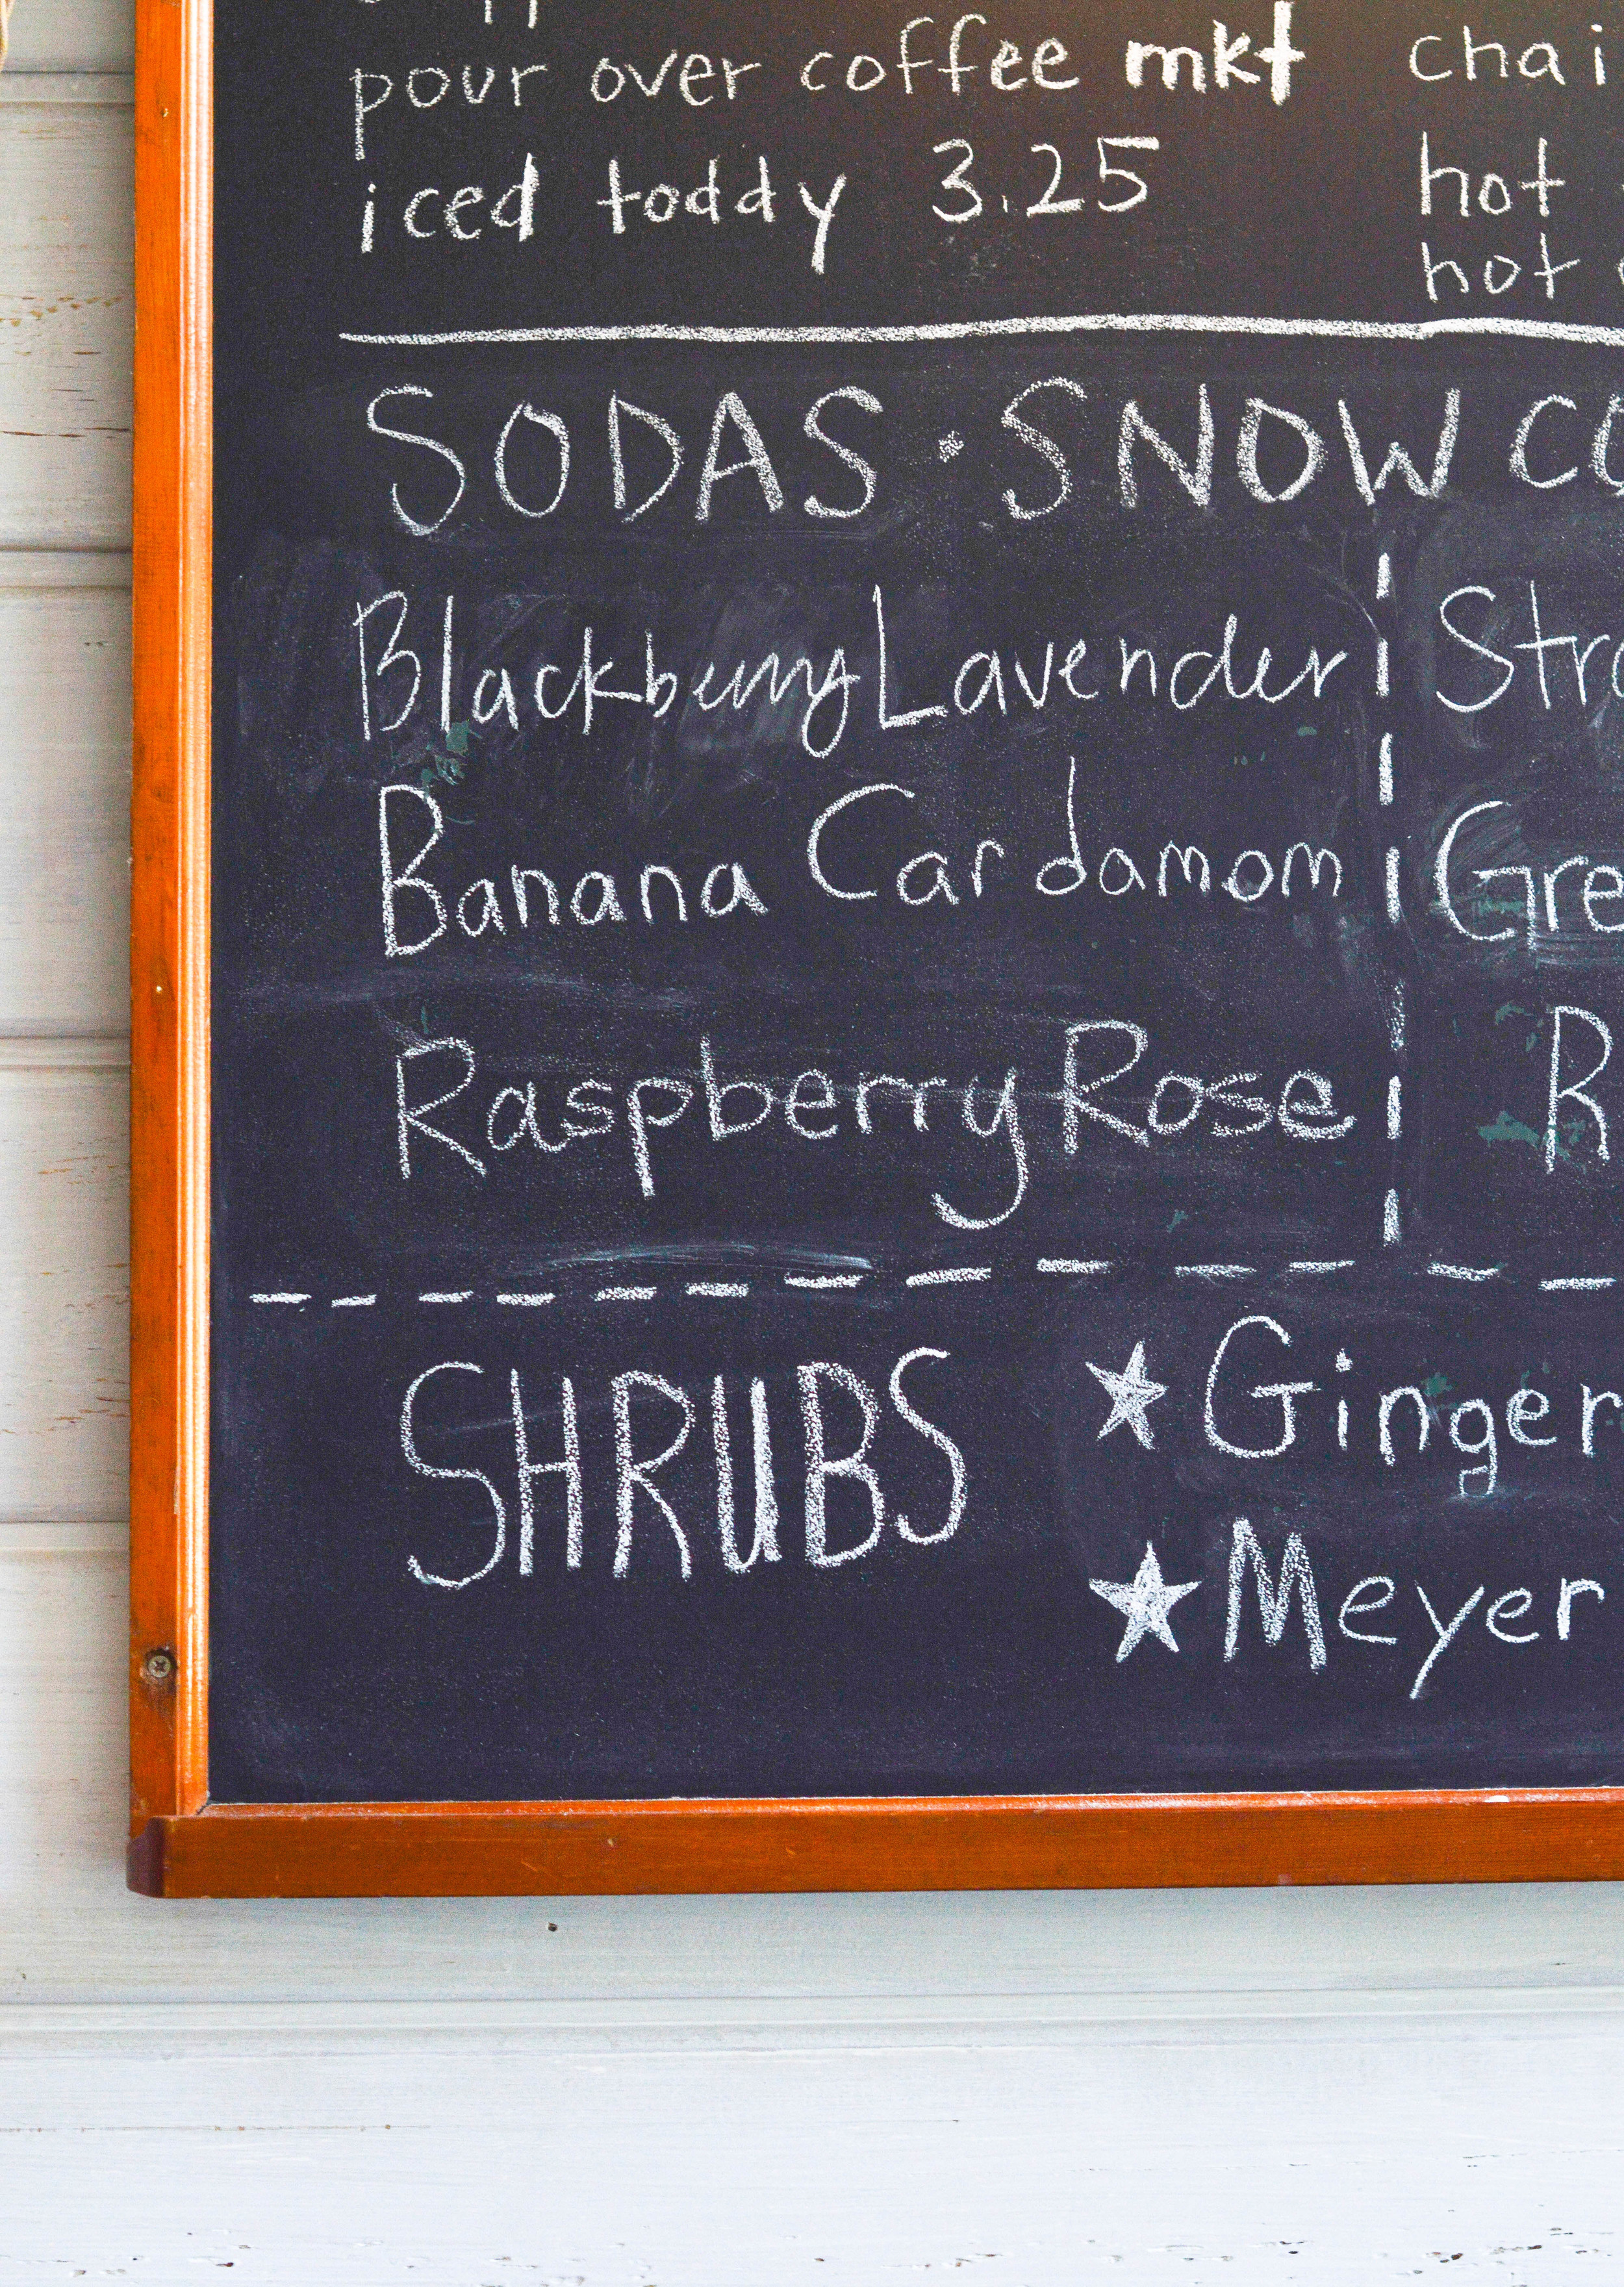 pour over coffee mkt chai
iced toddy 3.25 hot
hot
SODAS · SNOW CO
Blackberry Lavender Stra
Banana Cardamom Gre
Raspberry Rose R
SHRUBS ★ Ginger
★ Meyer